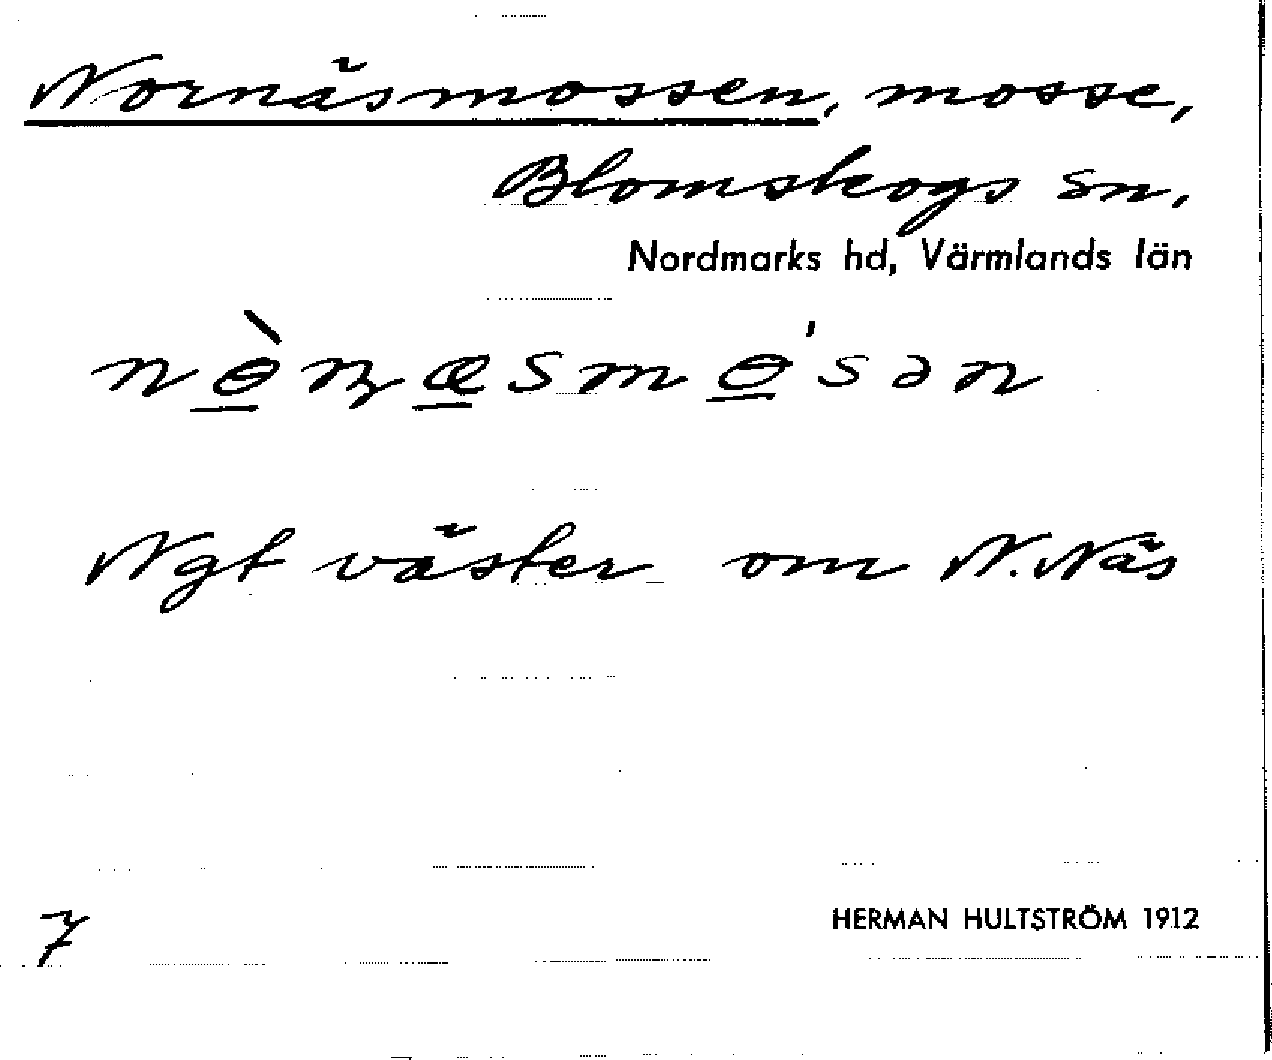 Nornäsmossen, mosse,
Blomskogs sn,
Nordmarks hd, Värmlands län
nɵ̲̀ɳæ̲smɵ̲́sən
Ngt väster om N. Näs
7
HERMAN HULTSTRÖM 1912